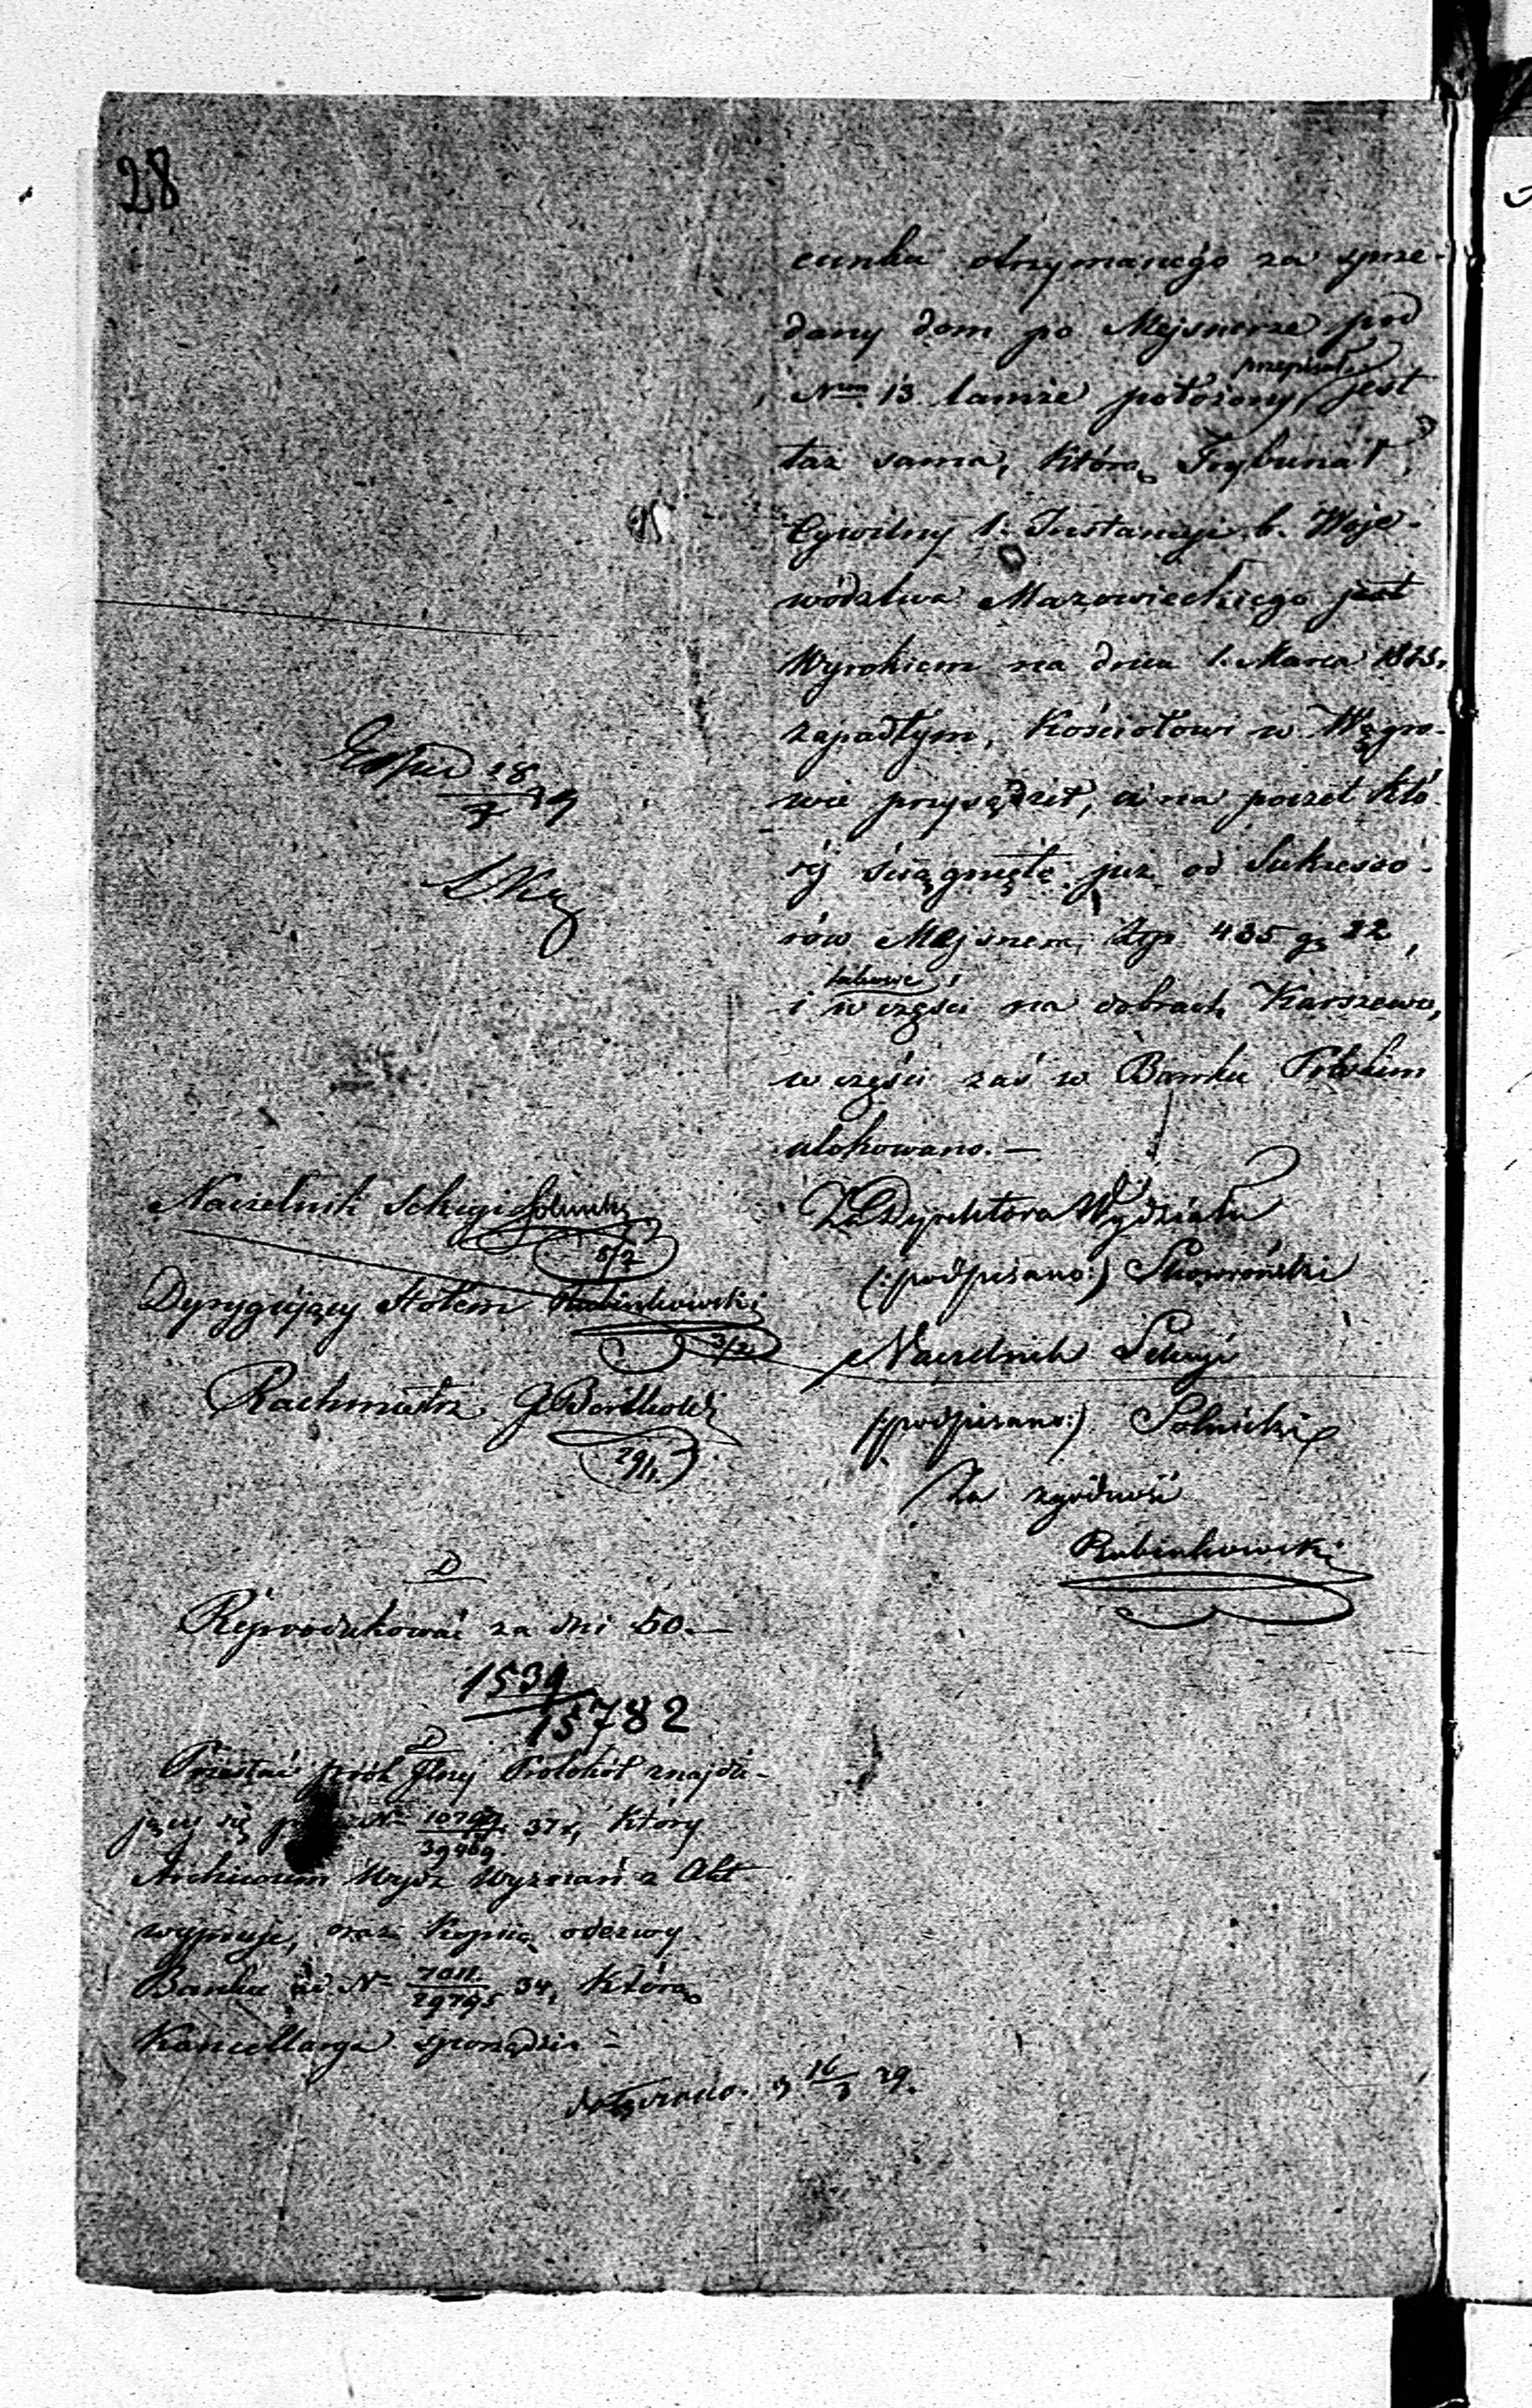 28
cunku otrzymanego za sprze-
dany dom po Mejsnerze pod
przepisał
Nrem 13 tamże położony, jest
taż sama, którą Trybunał
Cywilny 1. Instancyi b. Woje-
wództwa Mazowieckiego jest
Wyrokiem na dniu 1. Marca
zapadłym, Kościołowi w Węgro-
wie przysądził, a na poczet któ-
réj ściągnięte już od Sukcesso-
rów Mejsnera, Złp. 435 gr 22,
takowe
i w części na dobrach Karszewo,
w części zaś w Banku Polskim
ulokowano. —
Za Dyrektora Wydziału
(:podpisano:) Skowroński
Naczelnik Sekcyi
(:podpisano:) Solnicki
Za zgodność
Rubinkowski
18
Naczelnik Sekcyi Solnicki
5/2
Dyrygujący Stołem Rubinkowski
3/2
Rachmistrz G. Bartholdi
29/1.
D
Reprodukować za dni 50. —
1534
15782
D
Przesłać Protokół znajdu-
jący się 37 r, który
Archiwum Wyznań z Akt
wypruje, oraz Kopią odezwy
Banku ad N 7011
29795 34, którą
Kancellarya sporządzi —
16/3 39.